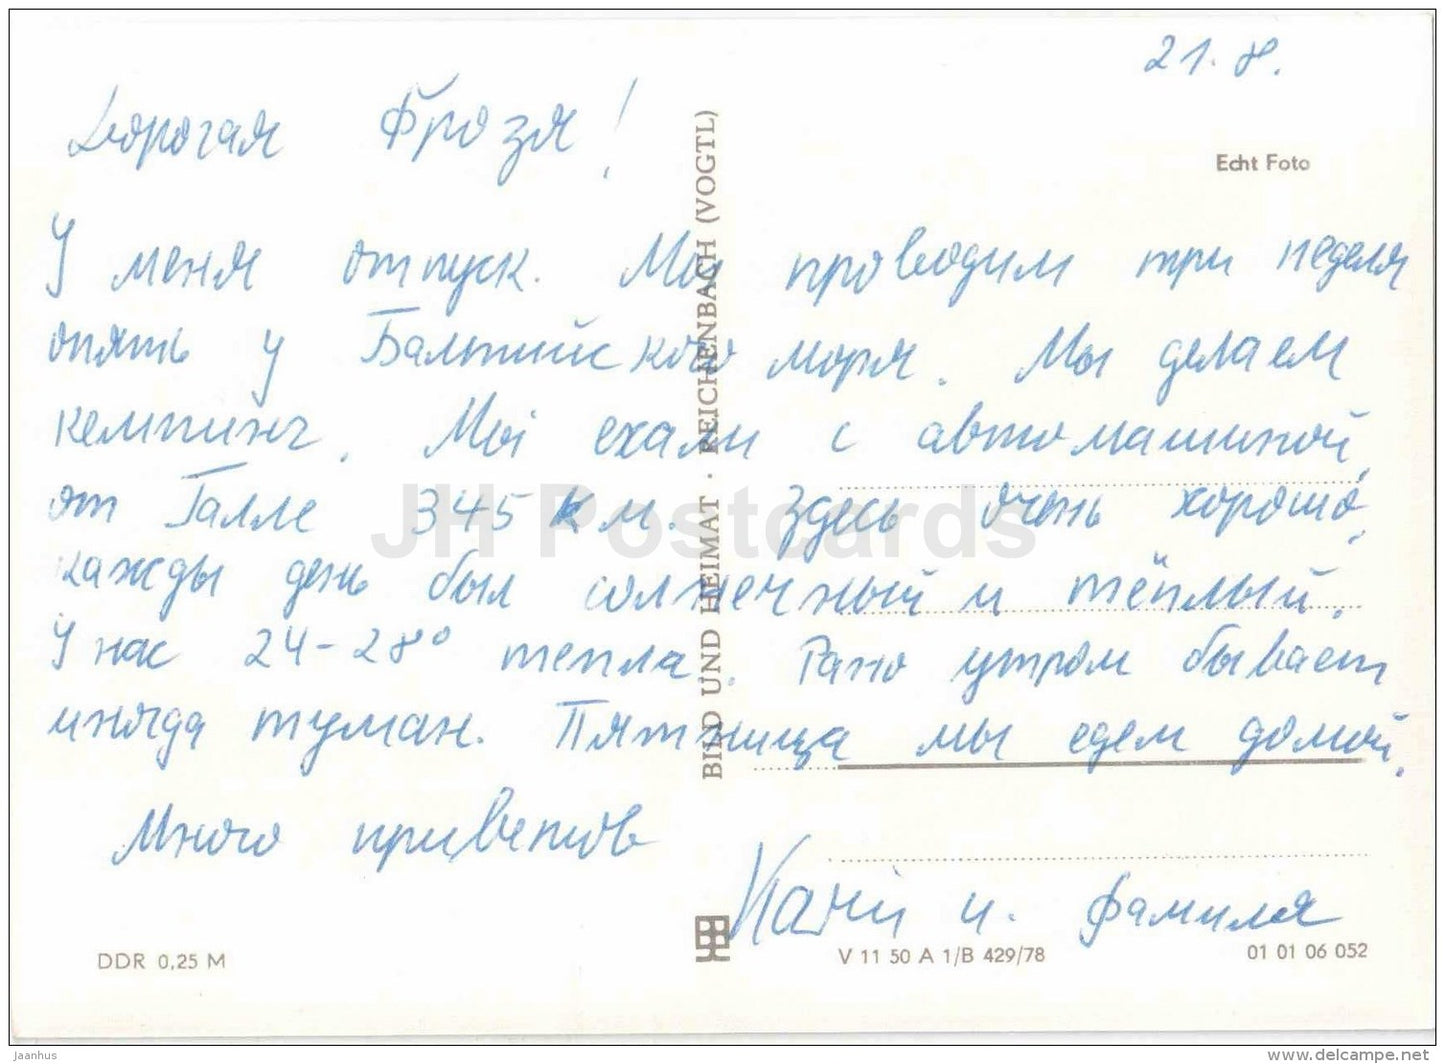 21.8.
Дорогая Фрозя!
Echt Foto
У меня отпуск. Мы проводим три неделя
опять у Балтийского моря. Мы делаем
кемпинг. Мы ехали с автомашиной
от Галле 345 км. Здесь очень хорошо,
кажды день был солнечный и тёплый.
У нас 24-28° тепла. Рано утром бывает
иногда туман. Пятница мы едем домой.
Много приветов
и. фамиля
BILD UND HEIMAT · REICHENBACH (VOGTL)
DDR 0,25 M
V 11 50 A 1/B 429/78
01 01 06 052
JH Postcards
jaanhus
www.delcampe.net